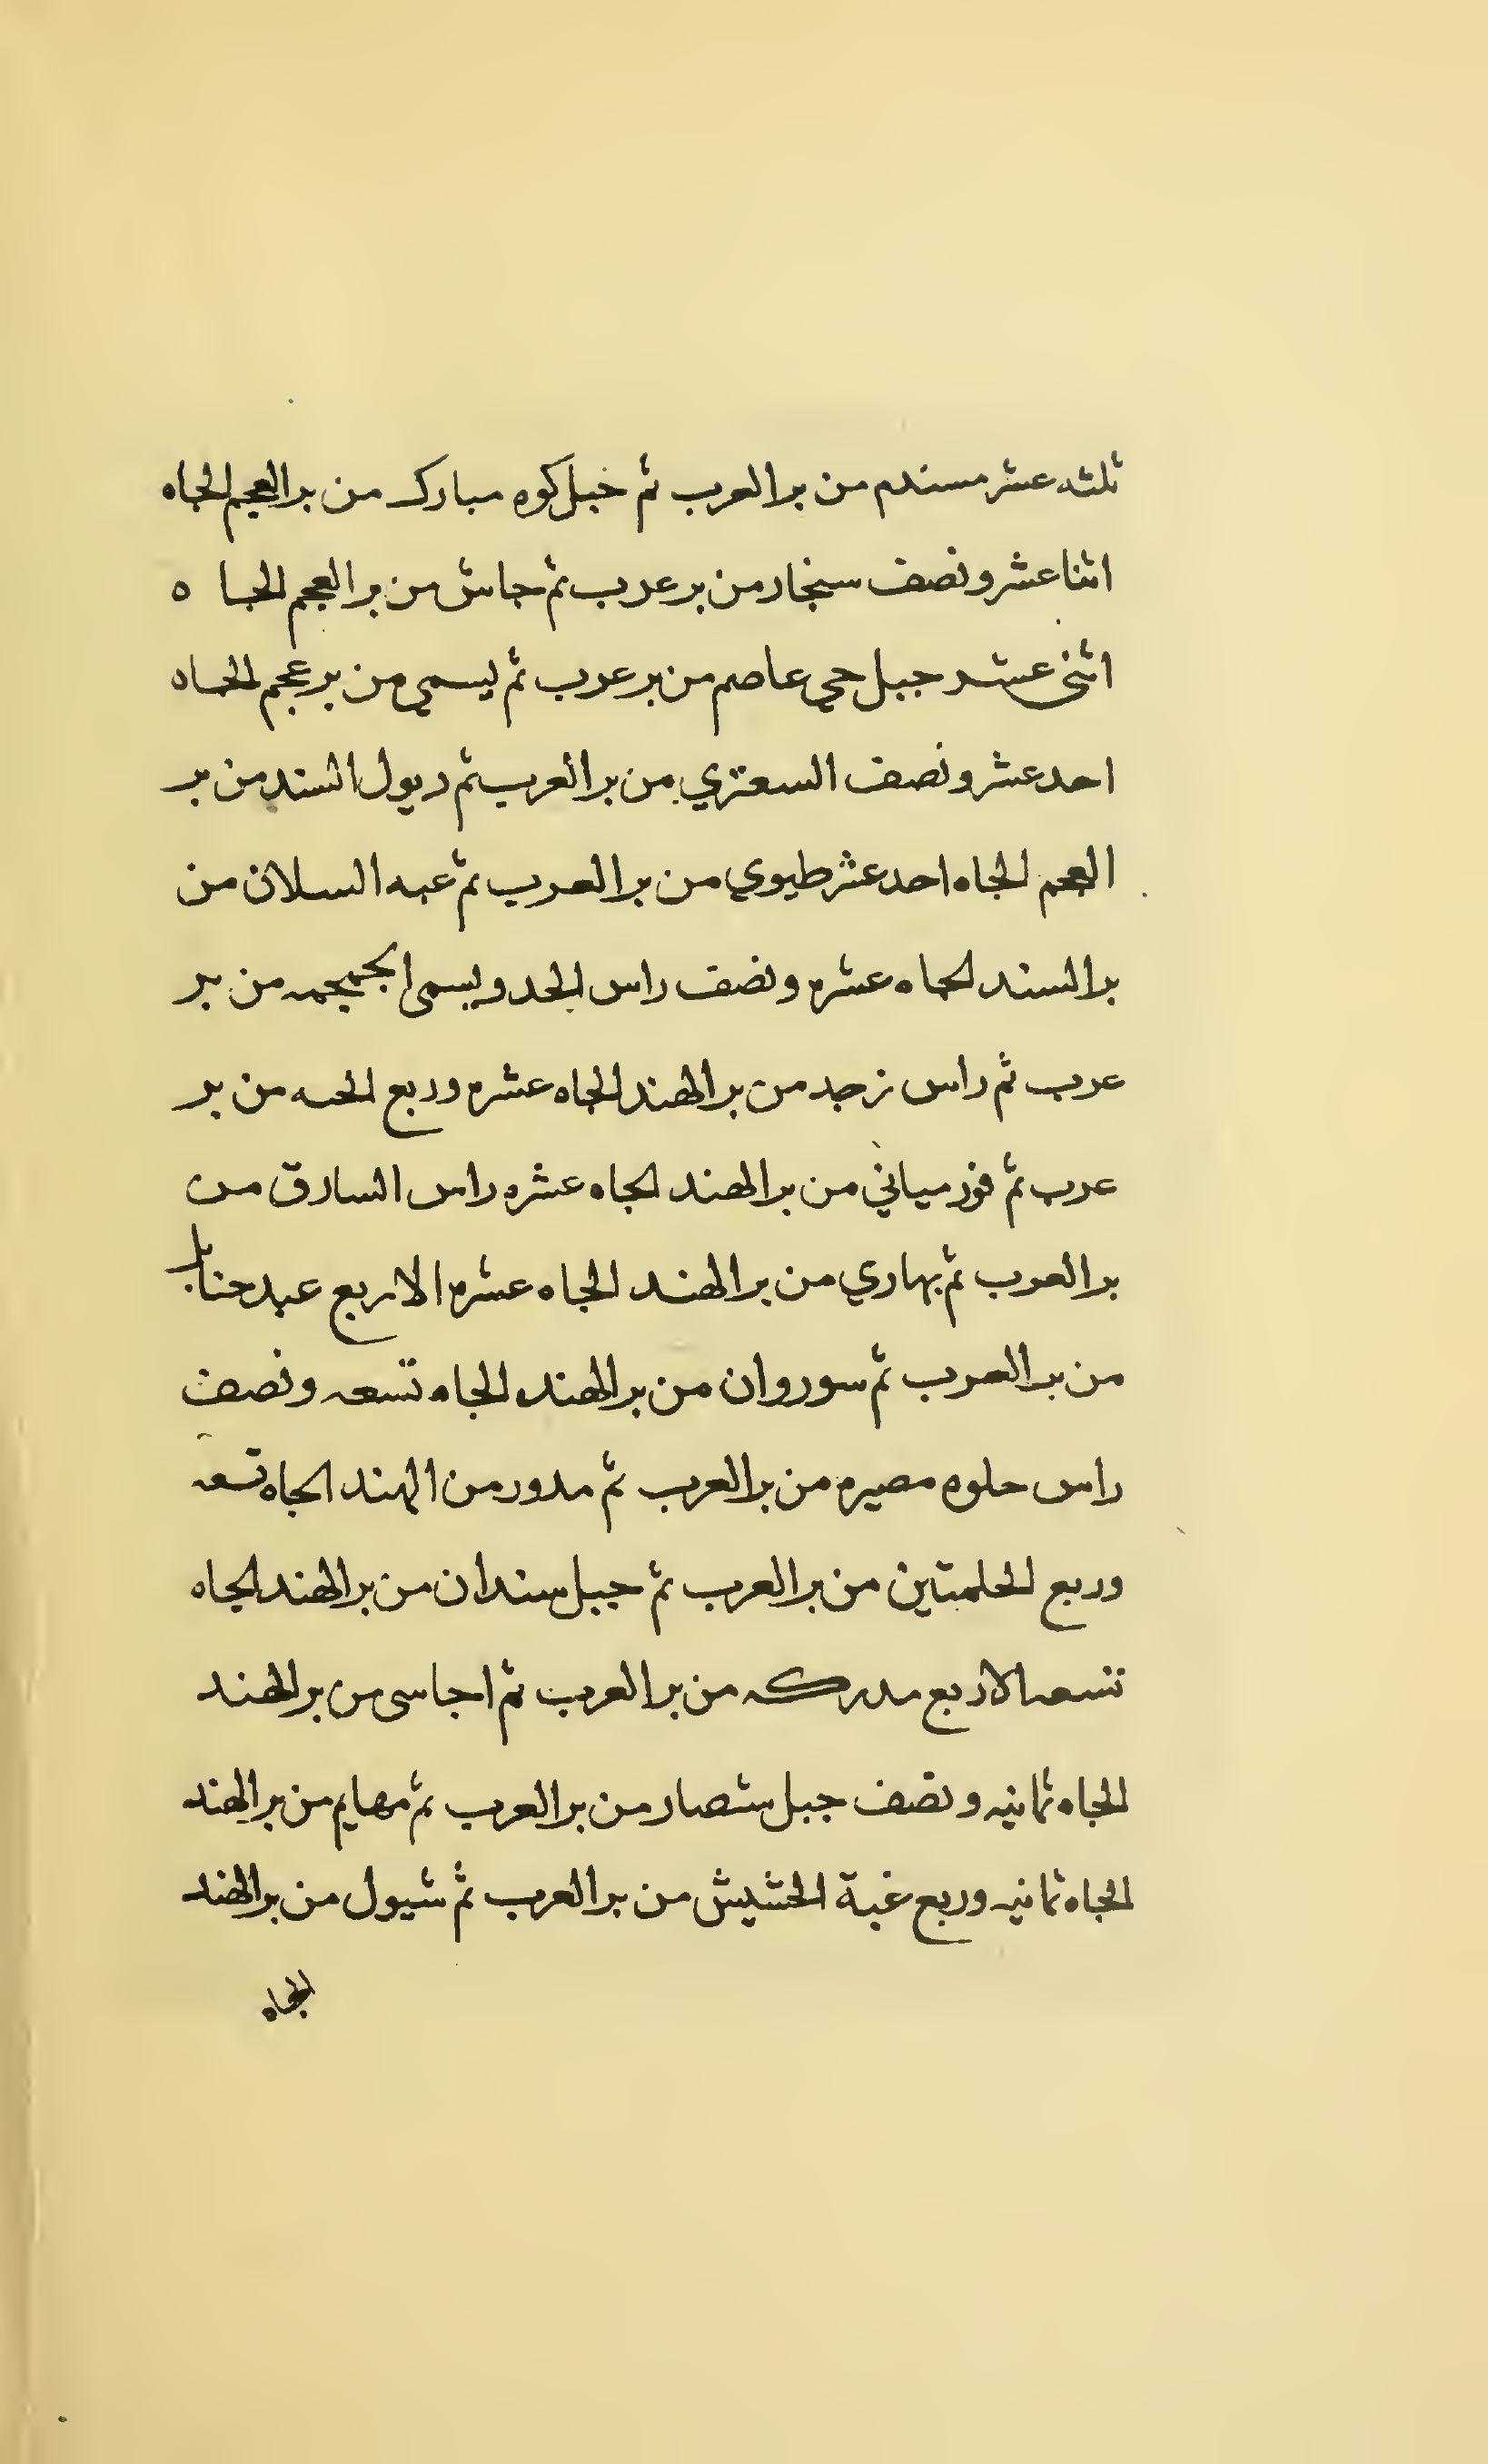 ثلثه عشر مسندم من بر العرب ثم خبل كوه مبارك من بر العجم الجاه
اثنا عشر ونصف سنجار من بر عرب ثم جاش من بر العجم الجاه
اثنى عشر جبل حي عاصم من بر عرب ثم ليسمي من بر عجم الحاه
احد عشر ونصف السعتري من بر العرب ثم ديول السند من بر
العجم الجاه احد عشر طيوي من بر العرب ثم عبه السلان من
بر السند لحاه عشره ونصف راس الحد ويسمى الجمجمه من بر
عرب ثم راس زجد من بر الهند الجاه عشره وربع الحبه من بر
عرب ثم فور مياني من بر الهند الجاه عشره راس السارق من
بر العرب ثم بهاري من بر الهند الجاه عشره الا ربع عبد حناب
من بر العرب ثم سوروان من بر الهند الجاه تسعه ونصف
راس حلوه مصيره من بر العرب ثم مدور من الهند الجاه تسعه
وربع الحلمتين من بر العرب ثم جبل سندان من بر الهند الجاه
تسعه الا ربع مدركه من بر العرب ثم اجاسى من بر الهند
الجاه ثمانيه ونصف جبل شصار من بر العرب ثم مهايم من بر الهند
الجاه ثمانيه وربع غبة الحشيش من بر العرب ثم شيول من بر الهند
الجاه